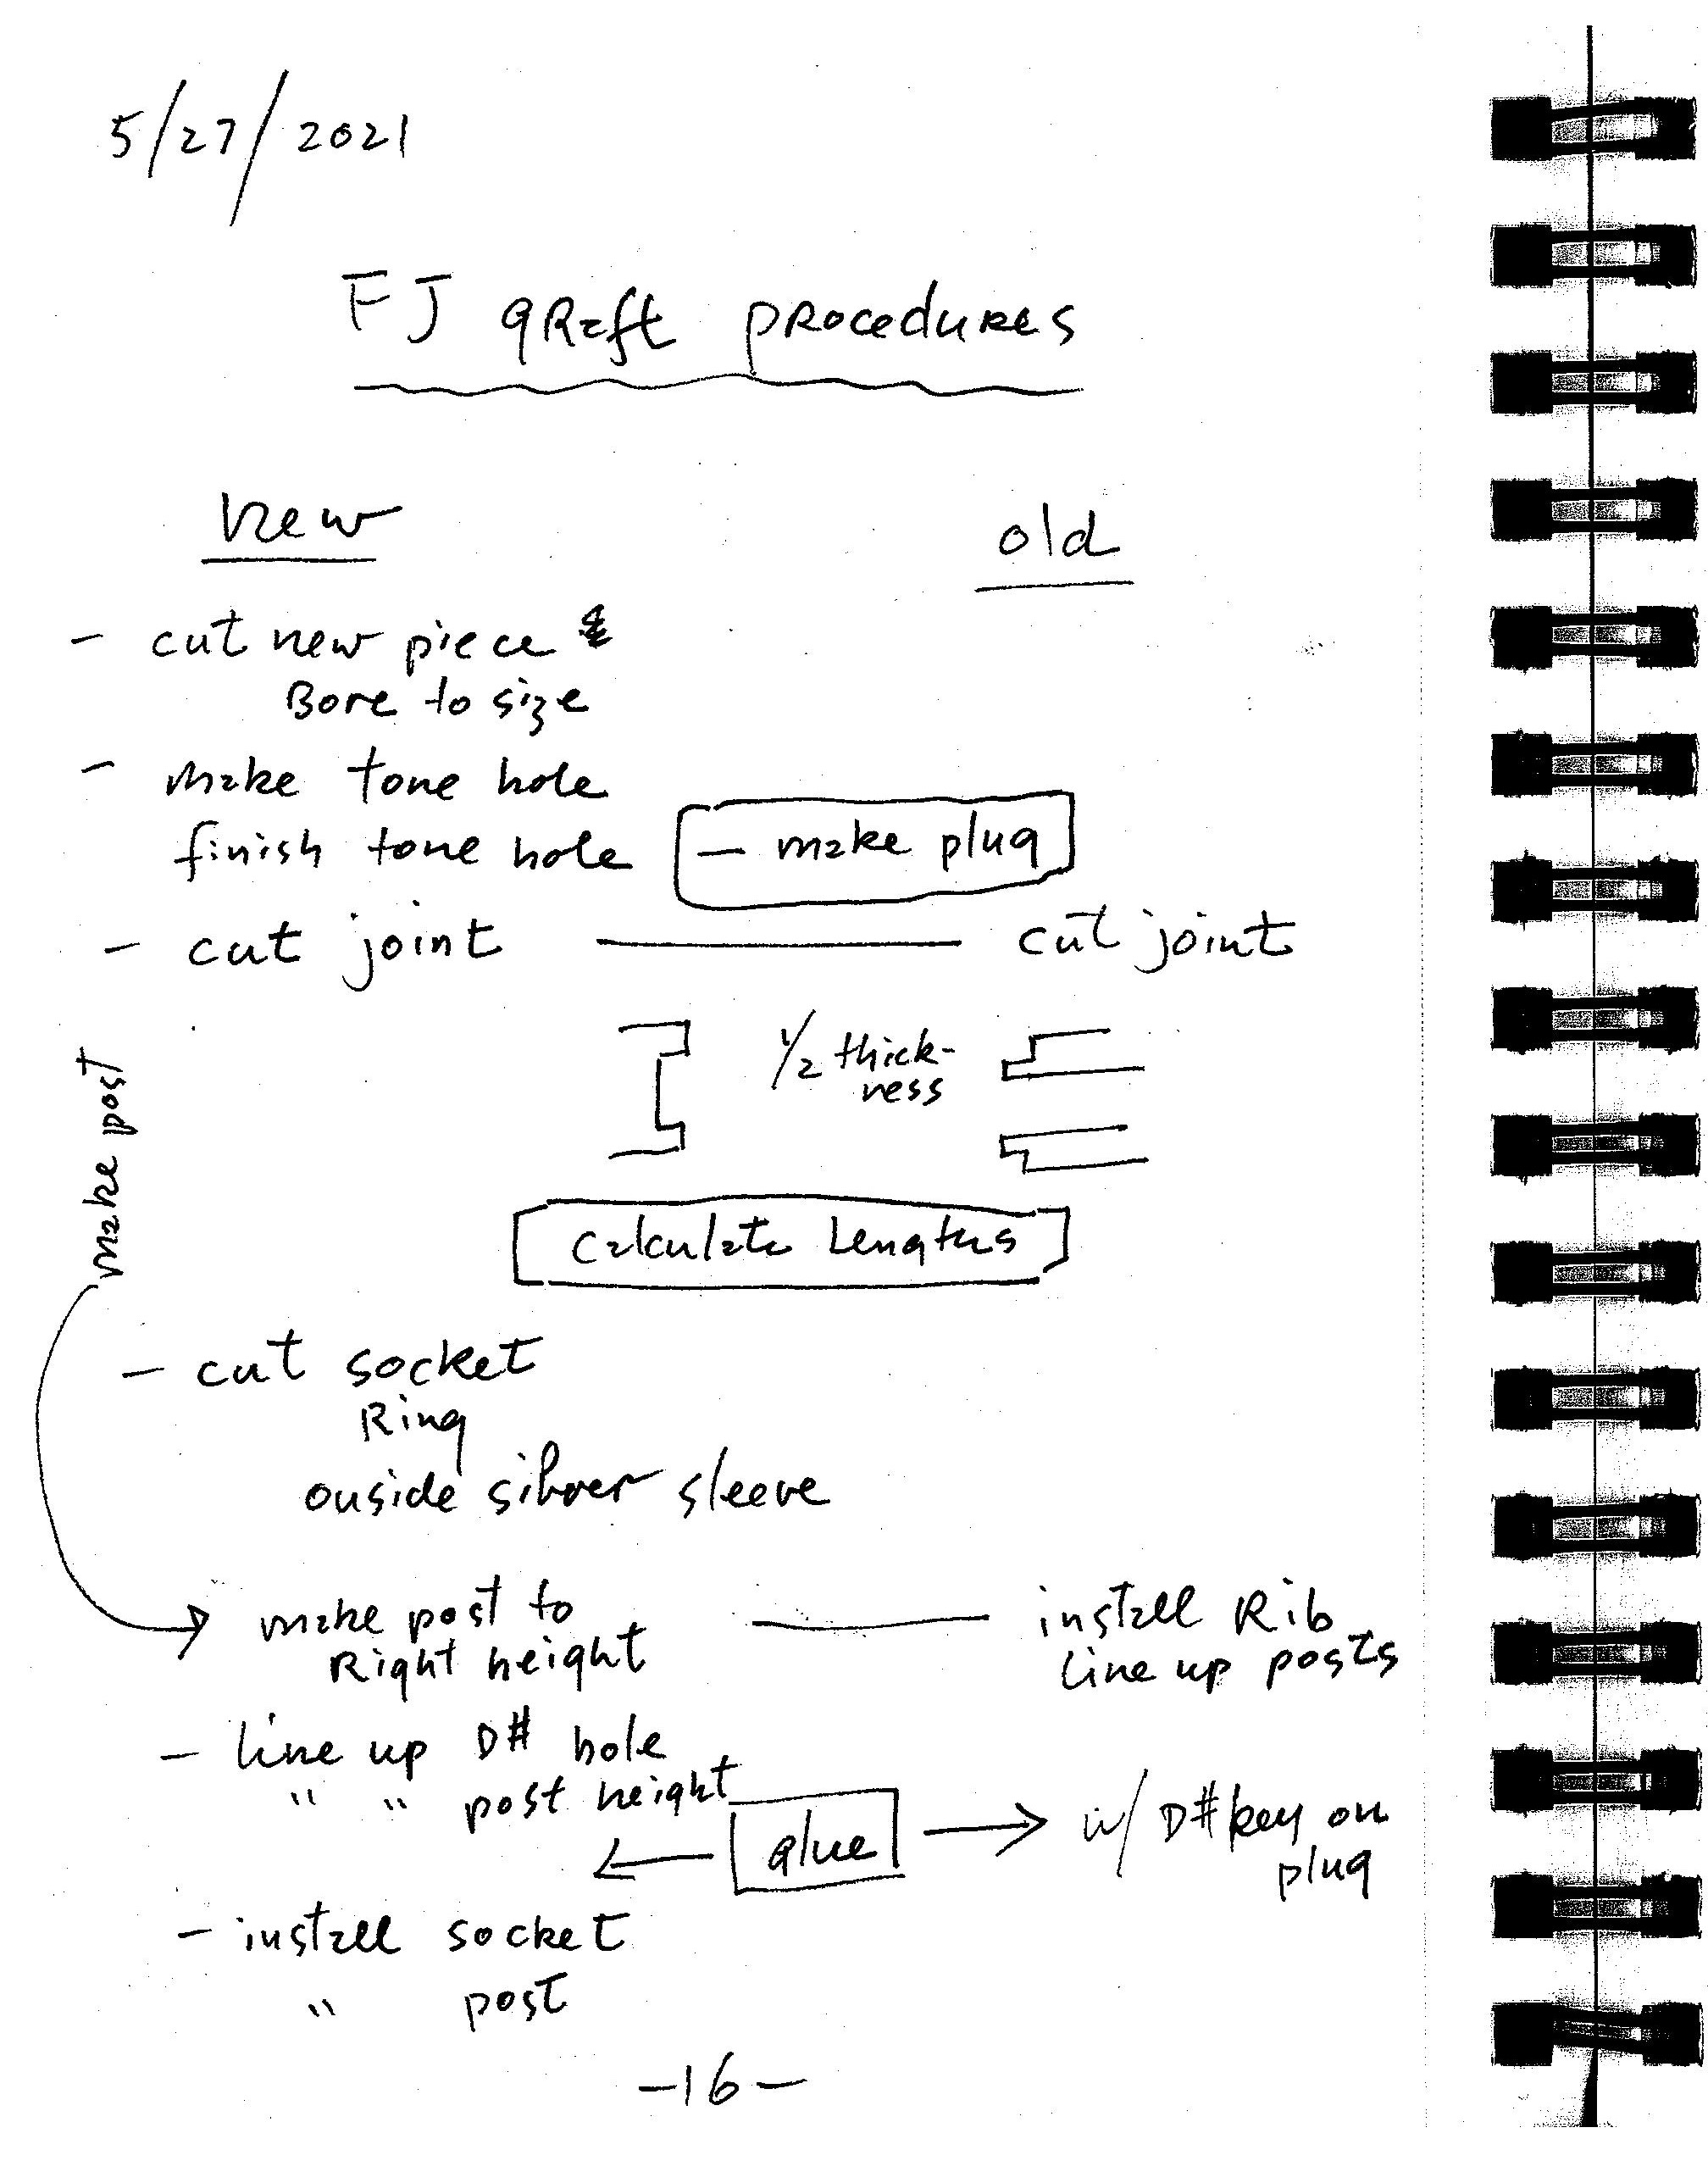 5/27/2021
FJ graft procedures
new
old
- cut new piece &
Bore to size
- make tone hole
finish tone hole
- make plug
- cut joint — cut joint
1/2 thick-
ness
make post
calculate Lengths
- cut socket
Ring
ouside silver sleeve
make post to
Right height
— install Rib
Line up posts
- line up D# hole
" " post height
glue
w/ D# key on
plug
- install socket
" post
-16-